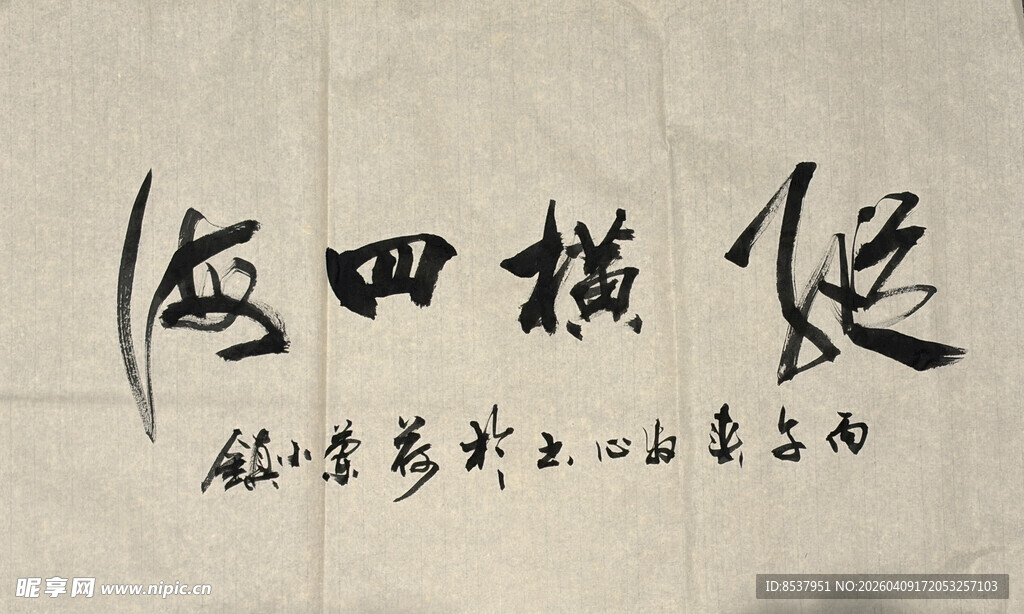 纵横四海
丙午春 心书於荷兰小镇
昵享网 www.nipic.cn
ID:8537951 NO:20260409172053257103